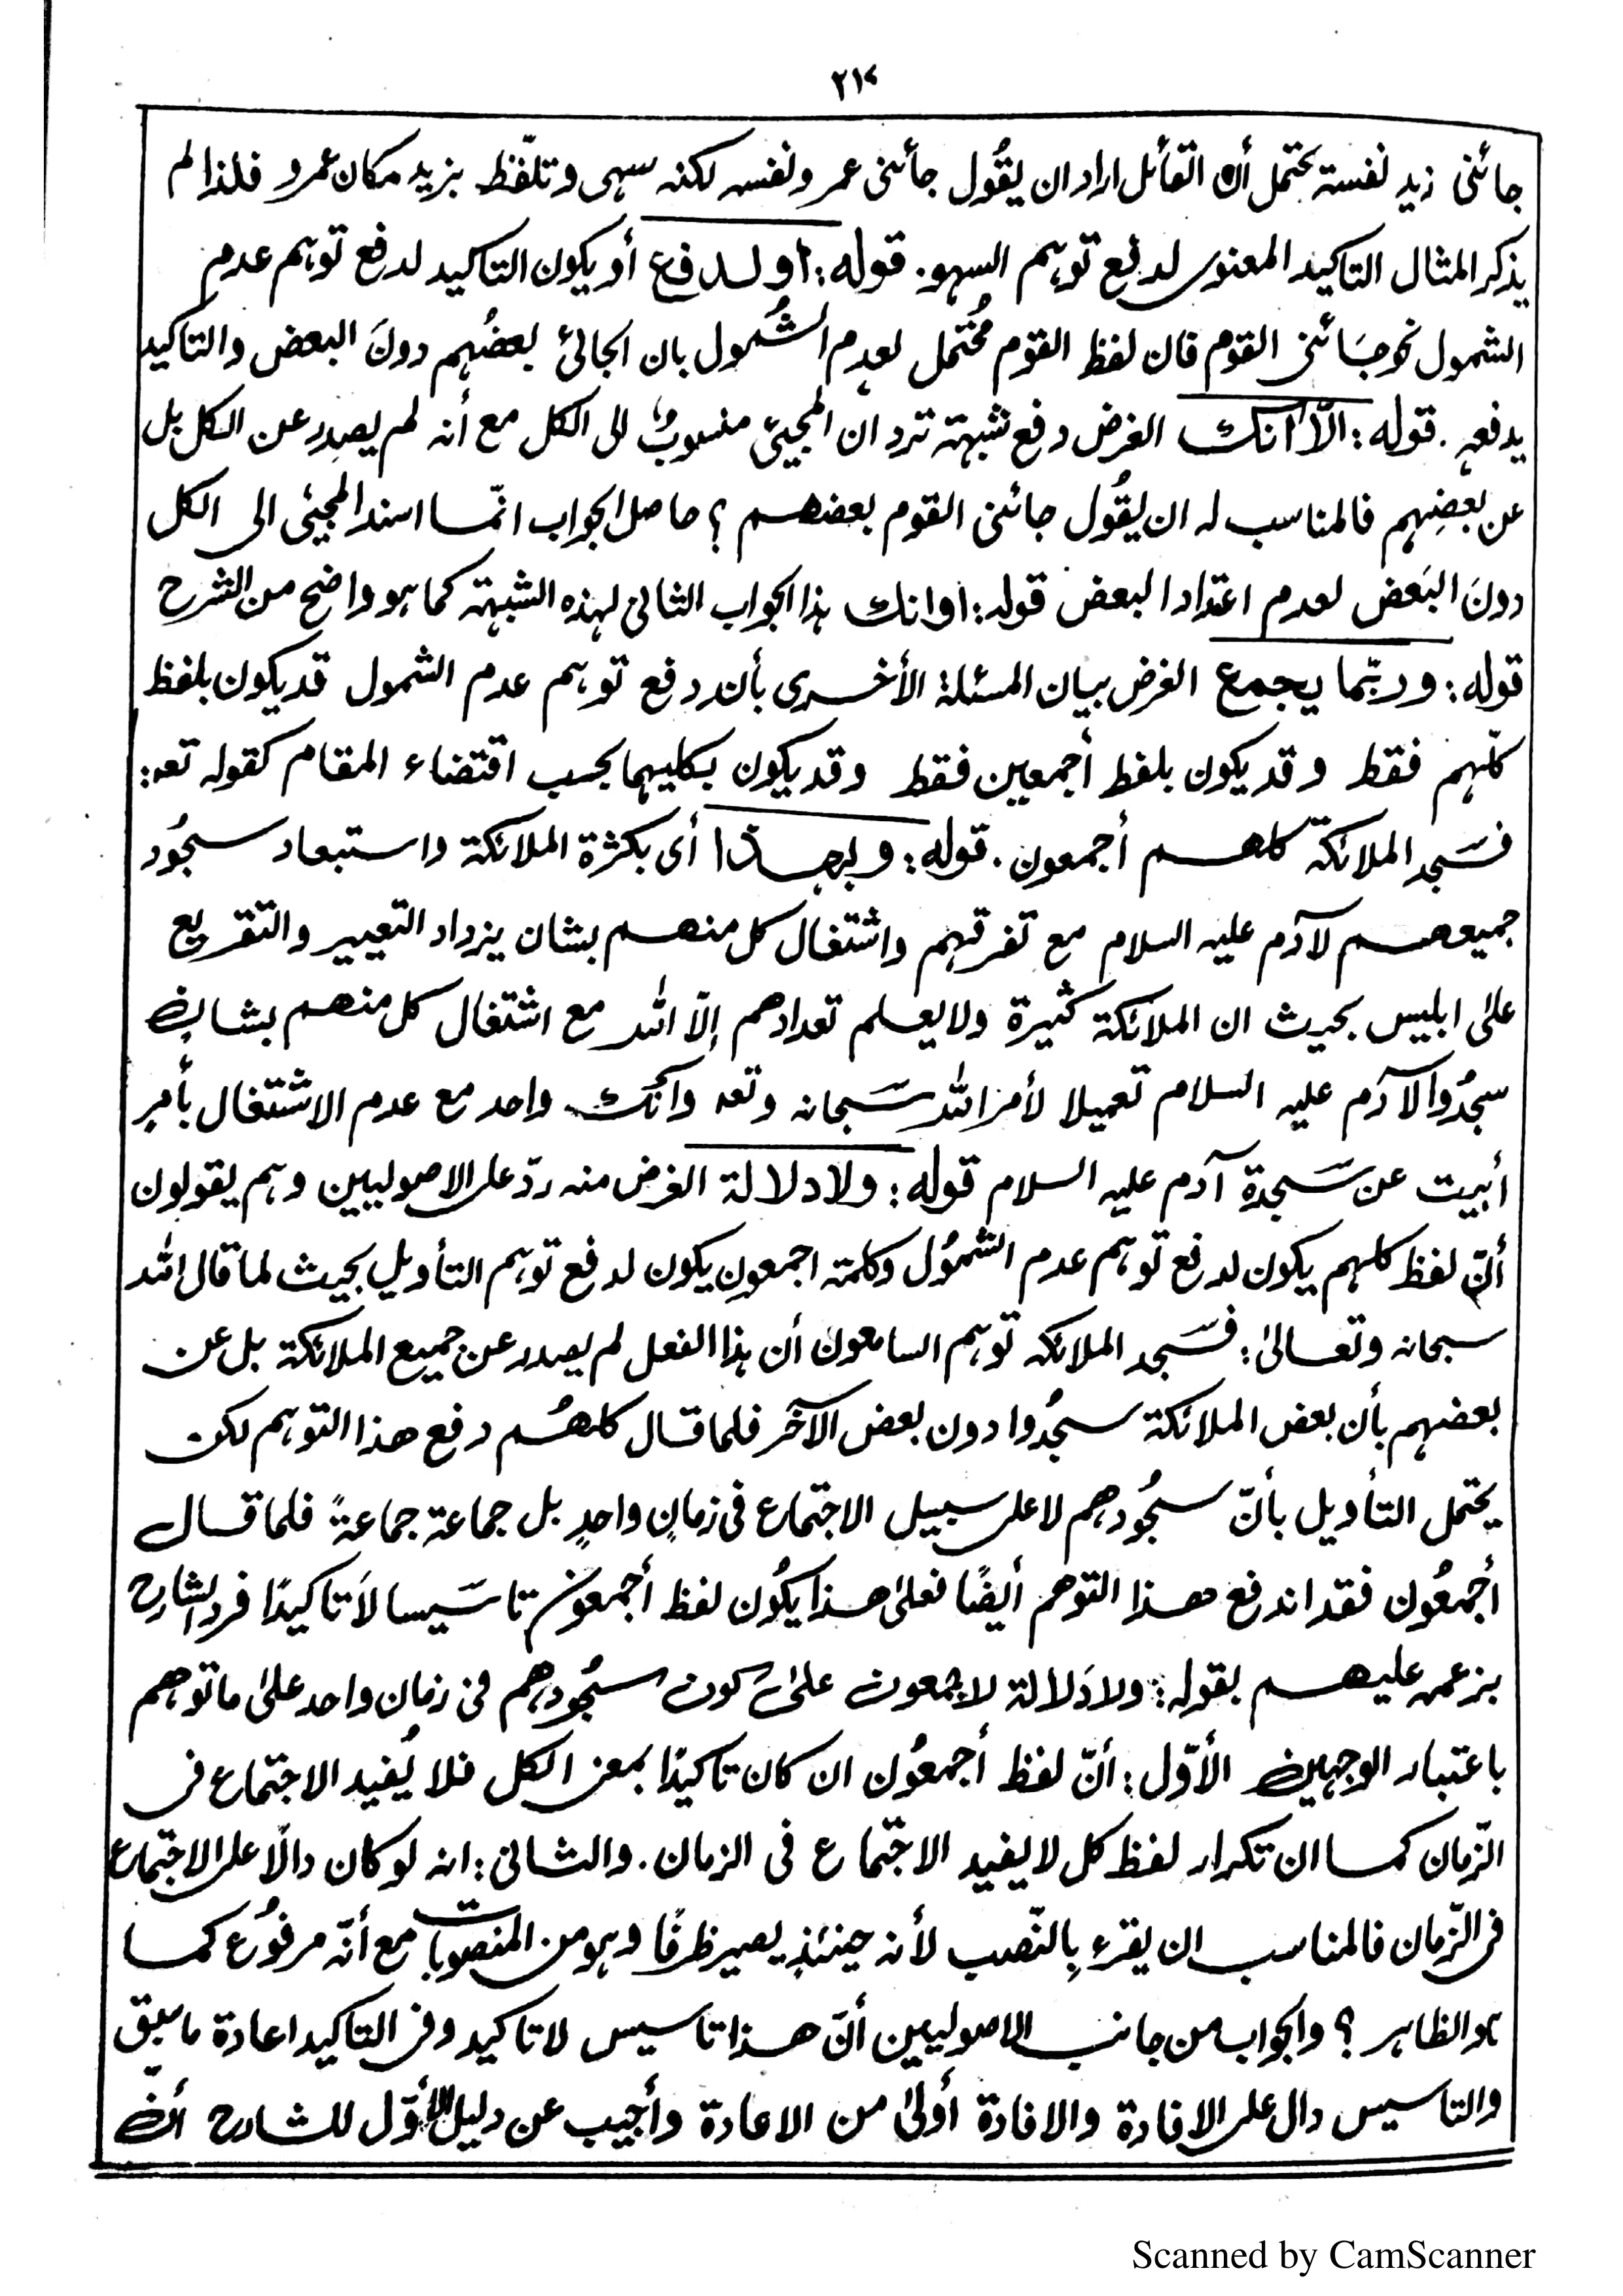 ٢١٧
جائنى زيد نفسه يحتمل أن القائل اراد ان يقُول جائنى عمرو نفسه لكنه سہى وتلفّظ بزيد مكان عمرو فلذا لم
يذكر المثال التاكيد المعنوى لدفع توہم السہو. قوله: او لدفع أو يكون التاكيد لدفع توہم عدم
الشمول نحو جَائنى القوم فان لفظ القوم مُحتمل لعدم الشُمول بان الجائى بعضُہم دونَ البعض والتاكيد
يدفعہ. قوله: الّا انك الغرض دفع شبہة ترد ان المجيئ منسوبٌ الى الكل مع أنه لم يصدر عن الكل بل
عن بعضِہم فالمناسب له ان يقُول جائنى القوم بعضهم ؟ حاصل الجواب انّما اسند المجيئى الى الكل
دونَ البَعض لعدم اعتداد البعض قوله: او انك ہذا الجواب الثانى لہذه الشبہة كما ہو واضح من الشرح
قوله: وربّما يجمع الغرض بيان المسئلة الأخرى بأن دفع توہم عدم الشمول قد يكون بلفظ
كلّہم فقط وقد يكون بلفظ أجمعين فقط وقد يكون بكليہما بحسب اقتضاء المقام كقوله تعہ:
فسَجد الملائكة كلهم أجمعون. قوله: وبهذا أى بكثرة الملائكة واستبعاد سجُود
جميعهم لآدم عليه السلام مع تفرقہم واشتغال كل منهم بشان يزداد التعيير والتقريع
علىٰ ابليس بحيث ان الملائكة كثيرة ولا يعلم تعدادهم إلّا الله مع اشتغال كل منهم بشانٍ
سجدُوا لآدم عليه السلام تعميلا لأمر الله سَبحانه وتعہ وانّك واحد مع عدم الاشتغال بأمرٍ
أبيت عن سَجدة آدم عليه السلام قوله: ولا دلالة الغرض منه ردّ على الاصوليين وہم يقولون
أنّ لفظ كلہم يكون لدفع توہم عدم الشمُول وكلمة اجمعون يكون لدفع توہم التأويل بحيث لما قال الله
سبحانه وتعالىٰ: فسَجد الملائكه توہم السامعون أن ہذا الفعل لم يصدر عن جميع الملائكة بل عن
بعضہم بأن بعض الملائكة سجدُوا دون بعض الآخر فلما قال كلهُم دفع هذا التوہم لكن
يحتمل التأويل بأنّ سجُودهم لا على سبيل الاجتماع فى زمانٍ واحدٍ بل جماعة جماعةً فلما قال
أجمعُون فقد اندفع هذا التوهم أيضًا فعلىٰ هذا يكُون لفظ أجمعون تاسَيسا لَا تاكيدًا فرد الشارح
بزعمہ عليهم بقوله: ولا دَلالة لاجمعون علىٰ كون سجُودهم فى زمان واحد علىٰ ما توهم
باعتبار الوجہين الأوّل: أنّ لفظ أجمعُون ان كان تاكيدًا بمعنى الكل فلا يُفيد الاجتماع فى
الزّمان كما ان تكرار لفظ كل لا يفيد الاجتماع فى الزمان. والثانى: انه لو كان دالًا على الاجتماع
فى الزّمان فالمناسب ان يقرء بِالنّصب لأنه حينئذٍ يصير ظرفًا وہو من المنصوبات مع أنّه مرفوُع كما
ہو الظاہر ؟ والجواب من جانب الاصوليين أنّ هذا تاسيس لا تاكيد وفى التاكيد اعادة ما سبق
والتاسيس دال على الافادة والافادة أولىٰ من الاعادة وأجيب عن دليل الأوّل للشارح أن
Scanned by CamScanner